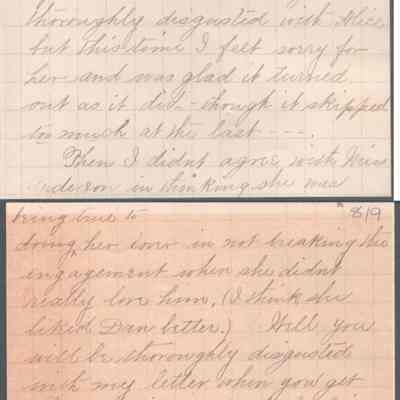 thoroughly disgusted with Alice
but this time I felt sorry for
her and was glad it turned
out as it did - though it skipped
too much at the last - - - .
Then I didnt agree with Miss
in thinking she was
being true to
819
doing her in not breaking the
engagement when she didnt
really love him. (I think she
liked Dan better.) Well you
will be thoroughly disgusted
with my letter when you get